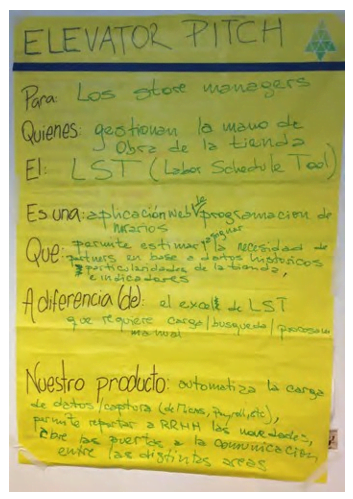 ELEVATOR PITCH
Para: Los store managers
Quienes: gestionan la mano de
Obra de la tienda
El: LST (Labor Schedule Tool)
Es una: aplicación web de programacion de
horarios
Que: permite estimar y asignar la necesidad de
partners en base a datos históricos
y particularidades de la tienda,
e indicadores
A diferencia (de): el excel de LST
que requiere carga/busqueda/proceso
manual
Nuestro producto: automatiza la carga
de datos/captura (de Micros, Payroll, etc),
permite reportar a RRHH las novedades,
abre las puertas a la comunicación
entre las distintas areas